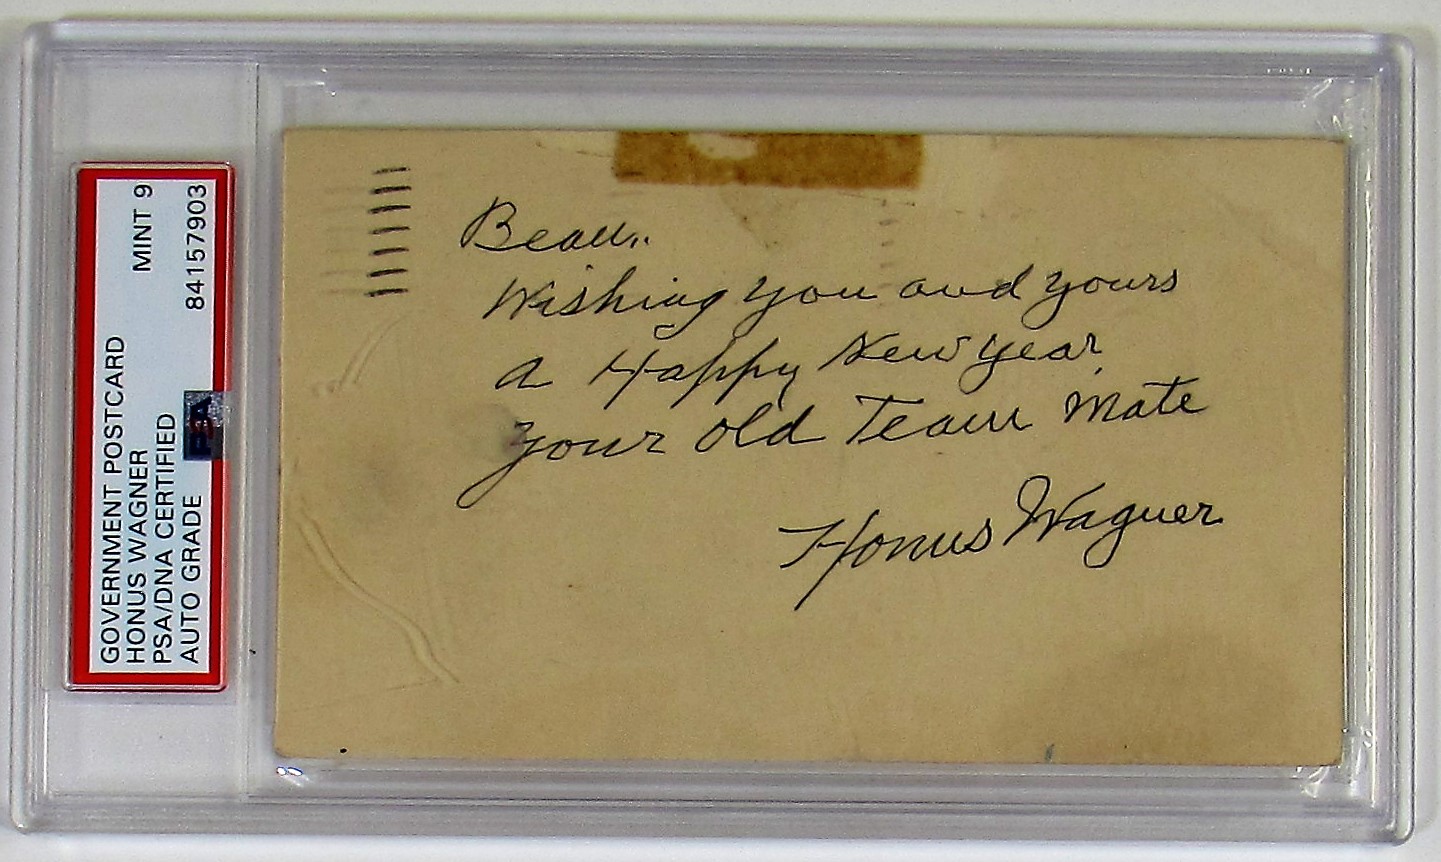 GOVERNMENT POSTCARD
HONUS WAGNER MINT 9
PSA/DNA CERTIFIED
AUTO GRADE 84157903
PSA
Beau..
Wishing you and yours
a Happy New Year
your old Team Mate
Honus Wagner